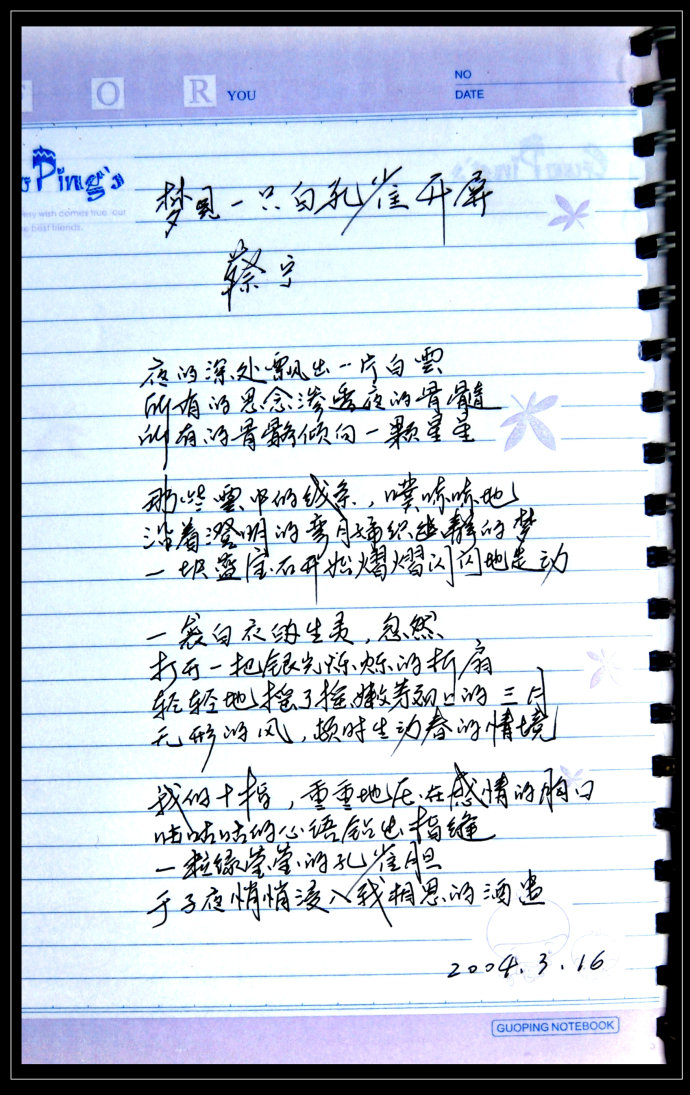 O R YOU
NO
DATE
Ping's
wish comes true. our
best friends.
梦见一只白孔雀开屏
蔡宁
夜的深处飘出一片白雲
所有的思念渗透夜的骨髓
所有的骨骼倾向一颗星星
那些雲中的线条，噗哧哧地
沿着澄明的弯月编织幽静的梦
一块蓝宝石开始熠熠闪闪地走动
一袭白衣的生灵，忽然
打开一把银光烁烁的折扇
轻轻地摇了摇嫩芽翘上的三月
无形的风，顿时生动春的情境
我的十指，重重地压在感情的胸口
咕咕咕的心语钻出指缝
一粒绿莹莹的孔雀胆
于子夜悄悄浸入我相思的酒盅
2004.3.16
GUOPING NOTEBOOK